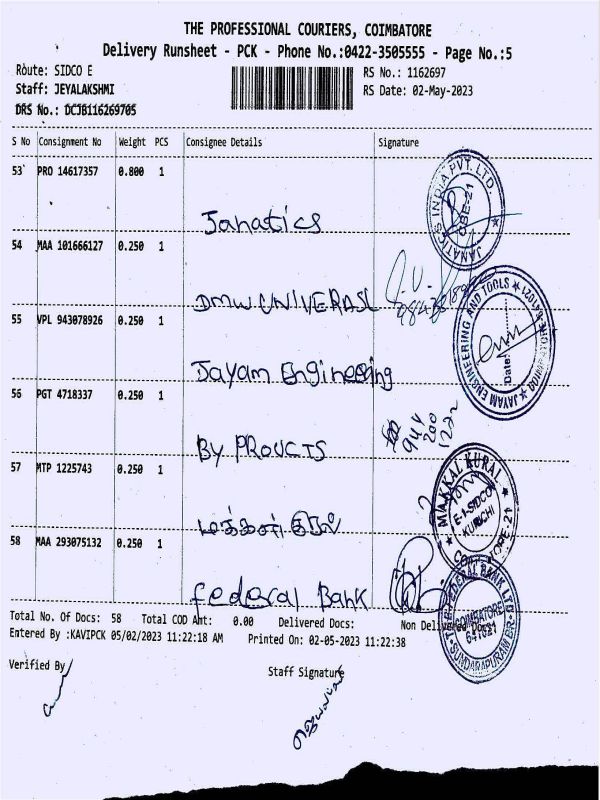 THE PROFESSIONAL COURIERS, COIMBATORE
Delivery Runsheet - PCK - Phone No.:0422-3505555 - Page No.:5
Route: SIDCO E
RS No.: 1162697
Staff: JEYALAKSHMI
RS Date: 02-May-2023
DRS No.: DCJB116269705
S No Consignment No Weight PCS Consignee Details Signature
53 PRO 14617357 0.800 1
Janatics
JANATICS INDIA PVT. LTD.
CBE-21
54 MAA 101666127 0.250 1
DMW UNIVERASL
55 VPL 943078926 0.250 1
Jayam Engineering
JAYAM ENGINEERING AND TOOLS
Date:
56 PGT 4718337 0.250 1
BY PROUCTS
944
200
57 MTP 1225743 0.250 1
மக்கள் குரல்
MAKKAL KURAL
E-1-SIDCO
KURICHI
58 MAA 293075132 0.250 1
federal Bank
THE FEDERAL BANK LTD
COIMBATORE
641021
SUNDARAPURAM BR
Total No. Of Docs: 58 Total COD Amt: 0.00 Delivered Docs: Non Delivered Docs:
Entered By :KAVIPCK 05/02/2023 11:22:18 AM Printed On: 02-05-2023 11:22:38
Verified By
Staff Signature